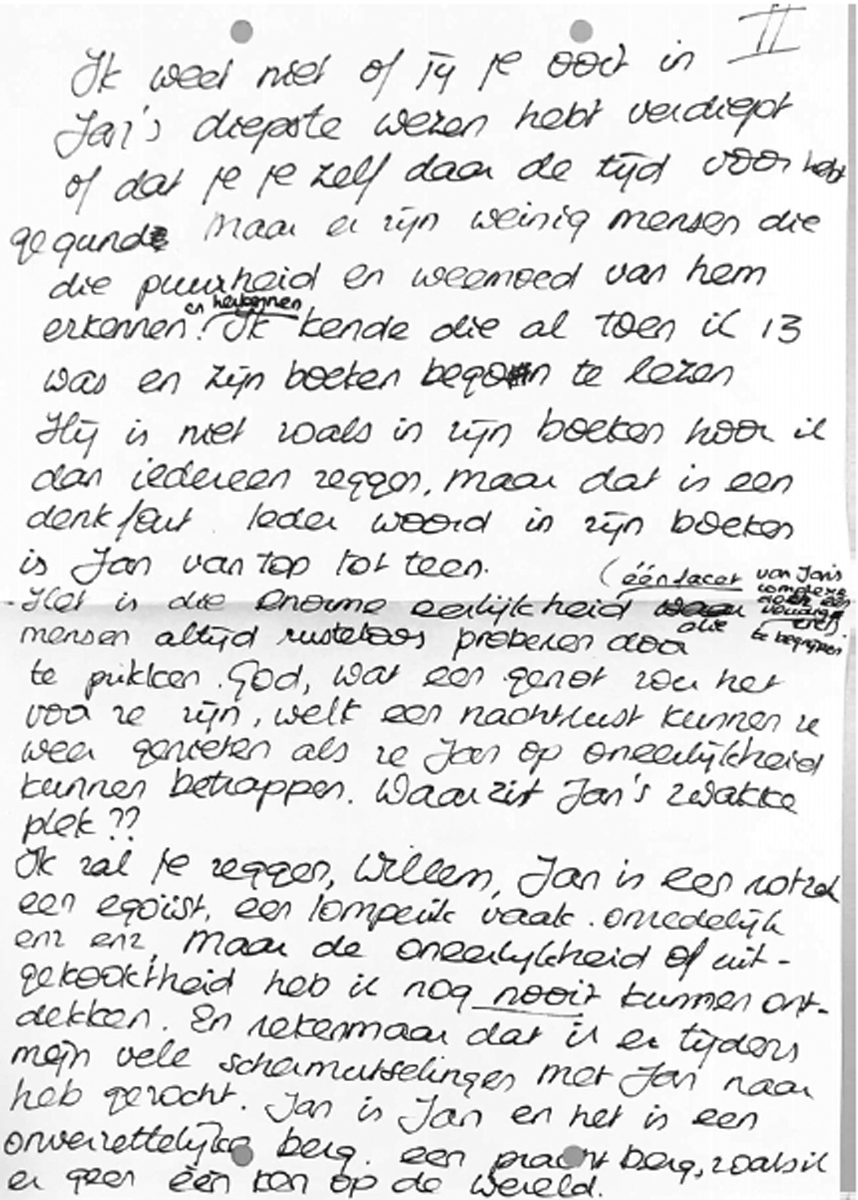 II
Ik weet niet of jij je ooit in
Jan's diepste wezen hebt verdiept
of dat je je zelf daar de tijd voor hebt
gegund maar er zijn weinig mensen die
die puurheid en weemoed van hem
en herkennen
erkennen. Ik kende die al toen ik 13
was en zijn boeken begon te lezen
Hij is niet zoals in zijn boeken hoor ik
dan iedereen zeggen, maar dat is een
denkfout Ieder woord in zijn boeken
is Jan van top tot teen.
(één facet van Jan's
complexe
te begrijpen
Het is die enorme eerlijkheid die
mensen altijd rusteloos proberen door
te prikken. God, wat een genot zou het
voor ze zijn, welk een nachtrust kunnen ze
weer genieten als ze Jan op oneerlijkheid
kunnen betrappen. Waar zit Jan's zwakke
plek??
Ik zal je zeggen, Willem, Jan is een rotzak
een egoïst, een lomperik vaak. onredelijk
enz enz, maar de oneerlijkheid of uit-
gekooktheid heb ik nog nooit kunnen ont-
dekken. En reken maar dat ik er tijdens
mijn vele schermutselingen met Jan naar
heb gezocht. Jan is Jan en het is een
onverzettelijke berg. een pracht berg, zoals ik
er geen één ken op de wereld.